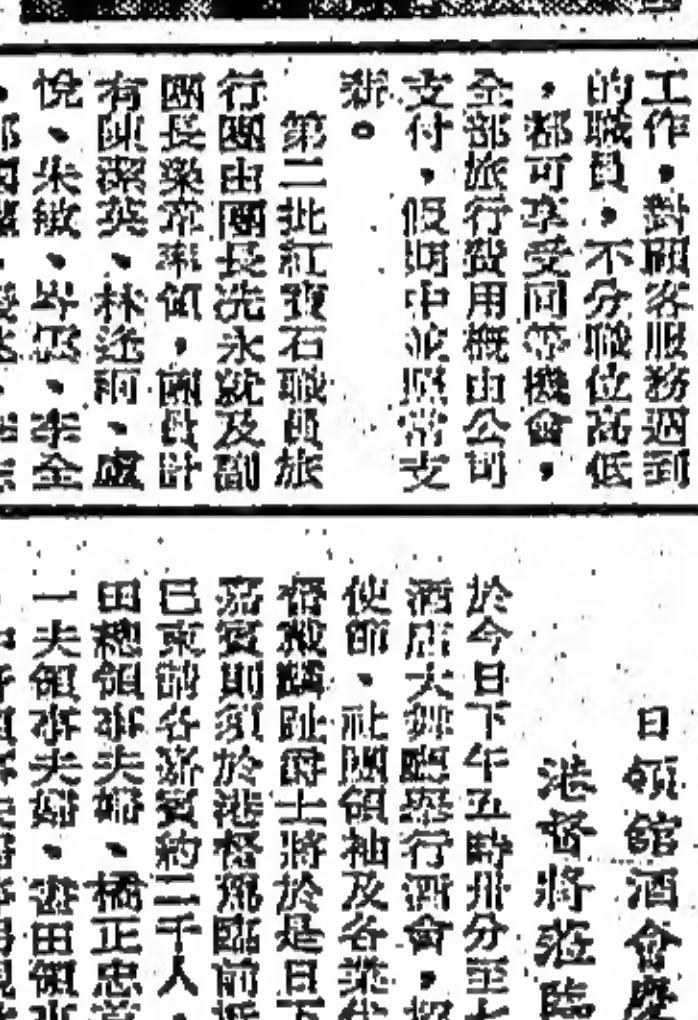 工作，對顧客服務週到
的職員，不分職位高低
，都可享受同等機會，
全部旅行費用概由公司
支付，假期中並照常支
薪。
第二批紅寶石職員旅
行團由團長冼永就及副
團長榮率領，團員計
有陳潔英、林逢、盧
悅、朱敏、岑、李全
日領館酒會慶
港督將蒞臨
於今日下午五時卅分至七
酒店大舞廳舉行酒會，招
使節、社團領袖及各業代
督戴麟趾爵士將於是日下
嘉賓則須於港督蒞臨前抵
已柬請各嘉賓約二千人，
田總領事夫婦、橋正忠
一夫領事夫婦、田領事